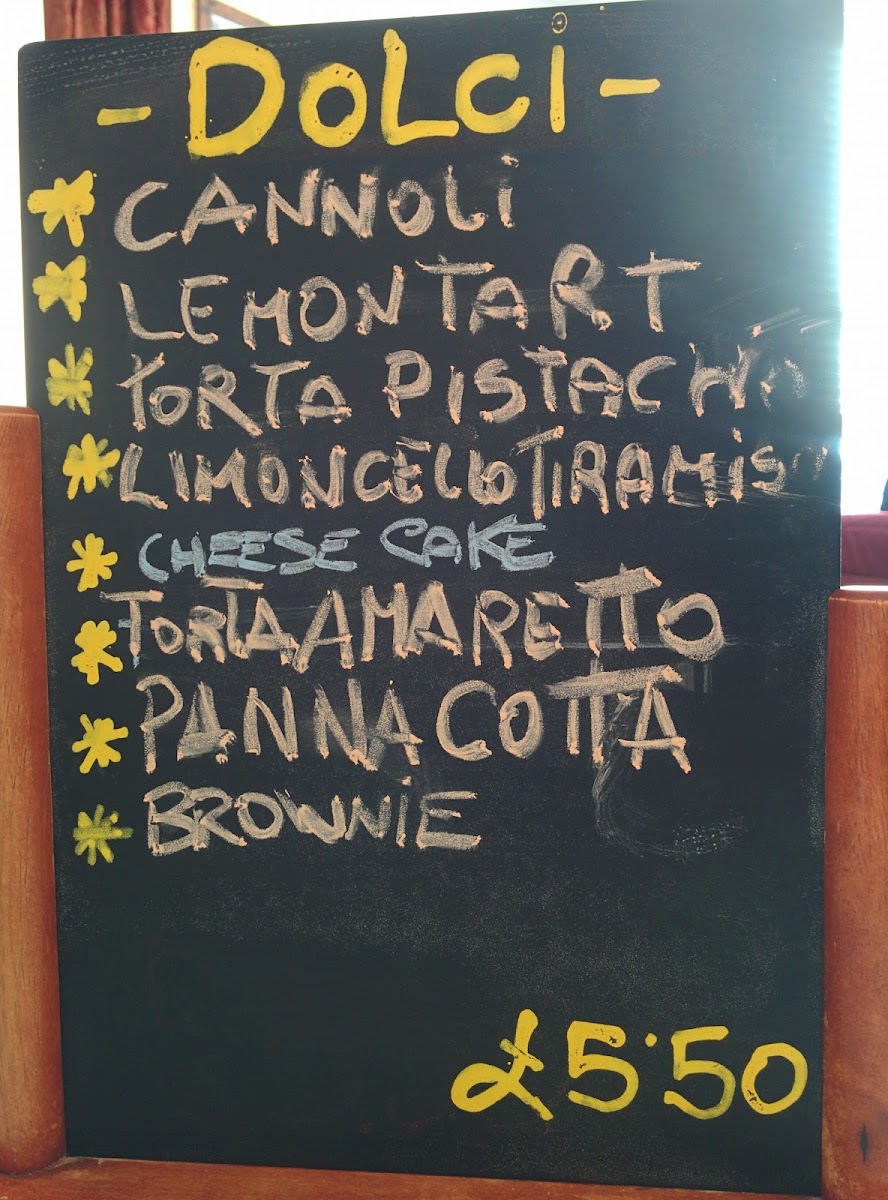 - DOLCi -
* CANNOLi
* LEMON TART
* TORTA PISTACHIO
* LIMONCELLO TIRAMiSU
* CHEESE CAKE
* TORTA AMARETTO
* PANNA COTTA
* BROWNiE
£5.50